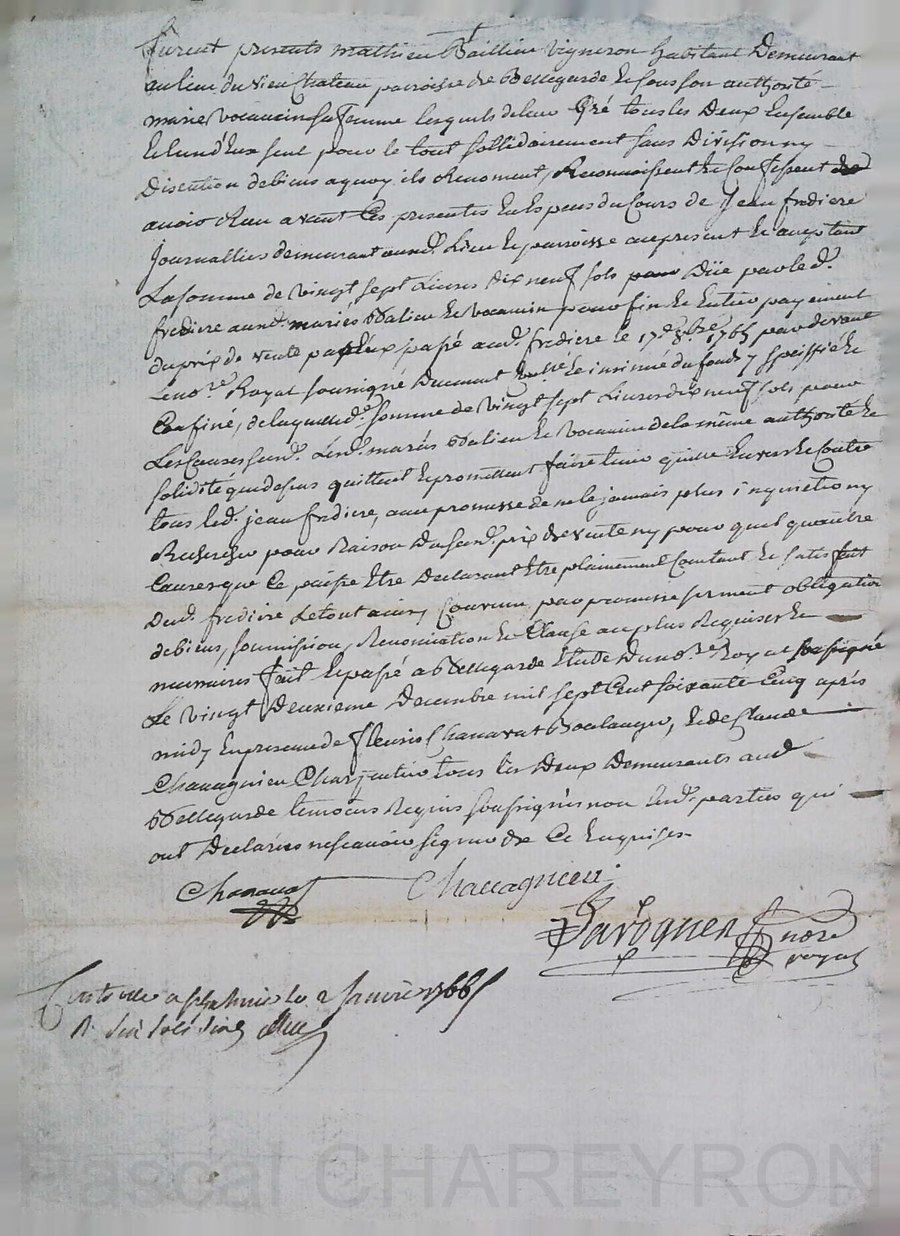 furent presents mathieu Baillieu vigneron habitant Demeurant
au lieu du vieu Chateau parroisse de Bellegarde et sous son authorité
marie vocanson sa femme lesquels de leur Gré tous les Deux Ensemble
et lun d'Eux seul pour le tout sollidairement sans Division ny
Discution de biens a quoy ils renoncent, Reconnoissent et confessent
avoir Reçu avant Ces presentes Especes du Cours de Jean fredière
Journallier demeurant aud. Lieu et parroisse present et acceptant
La somme de vingt sept Livres Dix neuf sols Düe par led.
fredière auxd. mariés Balieu et vocanson pour fin et Entier payement
du prix de vente par Eux passé aud. fredière le 17e 8bre 1765 par devant
Le no.re Royal soussigné Duement et insinué du fond y speciffié et
Confiné, de laquelle d. somme de vingt sept Livres dix neuf sols pour
Les Causes susd. Lesd. mariés Balieu et vocanson de la même authorité et
solidité que dessus quittent et promettent faire tenir quitte Envers et Contre
tous led. jean fredière, avec promesse de ne le jamais plus inquieter ny
Rechercher pour Raison Du susd. prix de vente ny pour quelqu autre
Cause que Ce puisse Etre Declarant Etre plainement Contant et satisfait
Dud. fredière Le tout ainsy Convenu par promesse serment obligation
de biens, soumission, Renonciation et Clause au plus Requises et
necessaires fait et passé a Bellegarde Etude Du no.re Royal soussigné
Le vingt Deuxieme Decembre mil sept Cent soixante Cinq après
midy En presence de fleury Chanavat Boulanger, et de Claude
Chavagnieu Charpentier tous les Deux Demeurants aud.
Bellegarde temoins Requis soussignés non lesd. parties qui
ont Declarées ne scavoir signer de Ce Enquises.
Chanavat Chavagnieu
nore
royal
Controllé a le 2 janvier 1766
R. six sols
Pascal CHAREYRON